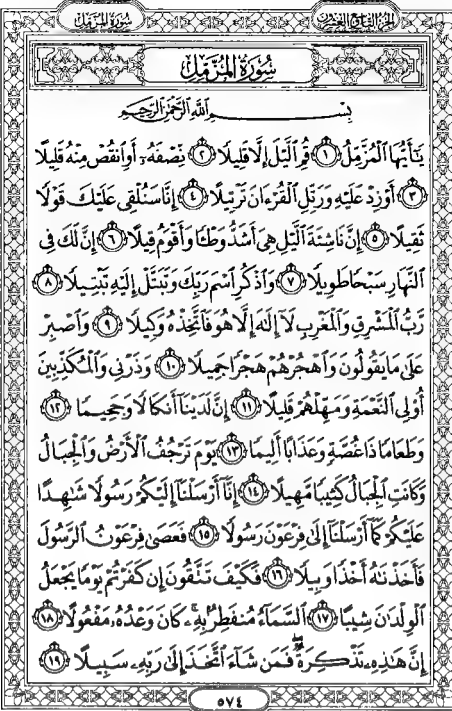 سُورَةُ المُزَّمِّل
الجُزْءُ التَّاسِعُ وَالعِشْرُونَ
سُورَةُ المُزَّمِّلِ
بِسْمِ اللَّهِ الرَّحْمَٰنِ الرَّحِيمِ
يَٰٓأَيُّهَا ٱلۡمُزَّمِّلُ ١ قُمِ ٱلَّيۡلَ إِلَّا قَلِيلٗا ٢ نِّصۡفَهُۥٓ أَوِ ٱنقُصۡ مِنۡهُ قَلِيلًا
٣ أَوۡ زِدۡ عَلَيۡهِ وَرَتِّلِ ٱلۡقُرۡءَانَ تَرۡتِيلًا ٤ إِنَّا سَنُلۡقِي عَلَيۡكَ قَوۡلٗا
ثَقِيلًا ٥ إِنَّ نَاشِئَةَ ٱلَّيۡلِ هِيَ أَشَدُّ وَطۡـٔٗا وَأَقۡوَمُ قِيلًا ٦ إِنَّ لَكَ فِي
ٱلنَّهَارِ سَبۡحٗا طَوِيلٗا ٧ وَٱذۡكُرِ ٱسۡمَ رَبِّكَ وَتَبَتَّلۡ إِلَيۡهِ تَبۡتِيلٗا ٨
رَّبُّ ٱلۡمَشۡرِقِ وَٱلۡمَغۡرِبِ لَآ إِلَٰهَ إِلَّا هُوَ فَٱتَّخِذۡهُ وَكِيلٗا ٩ وَٱصۡبِرۡ
عَلَىٰ مَا يَقُولُونَ وَٱهۡجُرۡهُمۡ هَجۡرٗا جَمِيلٗا ١٠ وَذَرۡنِي وَٱلۡمُكَذِّبِينَ
أُوْلِي ٱلنَّعۡمَةِ وَمَهِّلۡهُمۡ قَلِيلًا ١١ إِنَّ لَدَيۡنَآ أَنكَالٗا وَجَحِيمٗا ١٢
وَطَعَامٗا ذَا غُصَّةٖ وَعَذَابًا أَلِيمٗا ١٣ يَوۡمَ تَرۡجُفُ ٱلۡأَرۡضُ وَٱلۡجِبَالُ
وَكَانَتِ ٱلۡجِبَالُ كَثِيبٗا مَّهِيلًا ١٤ إِنَّآ أَرۡسَلۡنَآ إِلَيۡكُمۡ رَسُولٗا شَٰهِدًا
عَلَيۡكُمۡ كَمَآ أَرۡسَلۡنَآ إِلَىٰ فِرۡعَوۡنَ رَسُولٗا ١٥ فَعَصَىٰ فِرۡعَوۡنُ ٱلرَّسُولَ
فَأَخَذۡنَٰهُ أَخۡذٗا وَبِيلٗا ١٦ فَكَيۡفَ تَتَّقُونَ إِن كَفَرۡتُمۡ يَوۡمٗا يَجۡعَلُ
ٱلۡوِلۡدَٰنَ شِيبًا ١٧ ٱلسَّمَآءُ مُنفَطِرُۢ بِهِۦۚ كَانَ وَعۡدُهُۥ مَفۡعُولًا ١٨
إِنَّ هَٰذِهِۦ تَذۡكِرَةٞۖ فَمَن شَآءَ ٱتَّخَذَ إِلَىٰ رَبِّهِۦ سَبِيلًا ١٩
٥٧٤